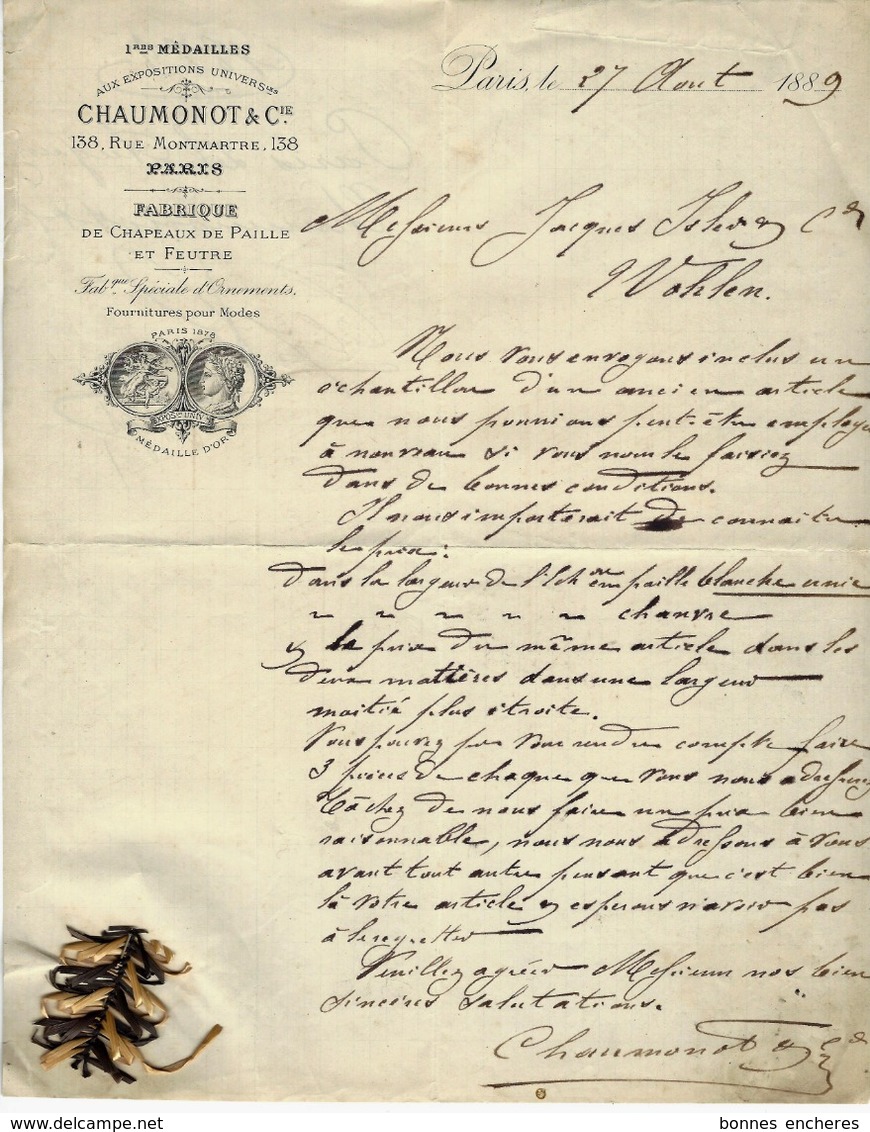 1RES MÉDAILLES
AUX EXPOSITIONS UNIVERSLES
CHAUMONOT & CIE.
138, RUE MONTMARTRE, 138
PARIS
FABRIQUE
DE CHAPEAUX DE PAILLE
ET FEUTRE
Fabque Spéciale d'Ornements.
Fournitures pour Modes
PARIS 1878
EXPOSon UNIVlle
MÉDAILLE D'OR
Paris, le 27 Aout 1889
Messieurs Jacques Isler & Cie
Wohlen.
Nous vous envoyons inclus un
échantillon d'un ancien article
que nous pourrions peut-être employer
à nouveau si vous nous le faisiez
dans de bonnes conditions.
Il nous importerait de connaitre
le prix :
Dans la largeur de l'Echon en paille blanche unie
~ ~ ~ ~ ~ chanvre
& le prix du même article dans les
deux matières dans une largeur
moitié plus étroite.
Vous pouvez pr vous rendre compte faire
3 pièces de chaque que vous nous adresserez
Tâchez de nous faire un prix bien
raisonnable, nous nous adressons à vous
avant tout autre pensant que c'est bien
là votre article & esperons n'avoir pas
à le regretter
Veuillez agréer Messieurs nos bien
sincères salutations.
Chaumonot & Cie
bonnes encheres